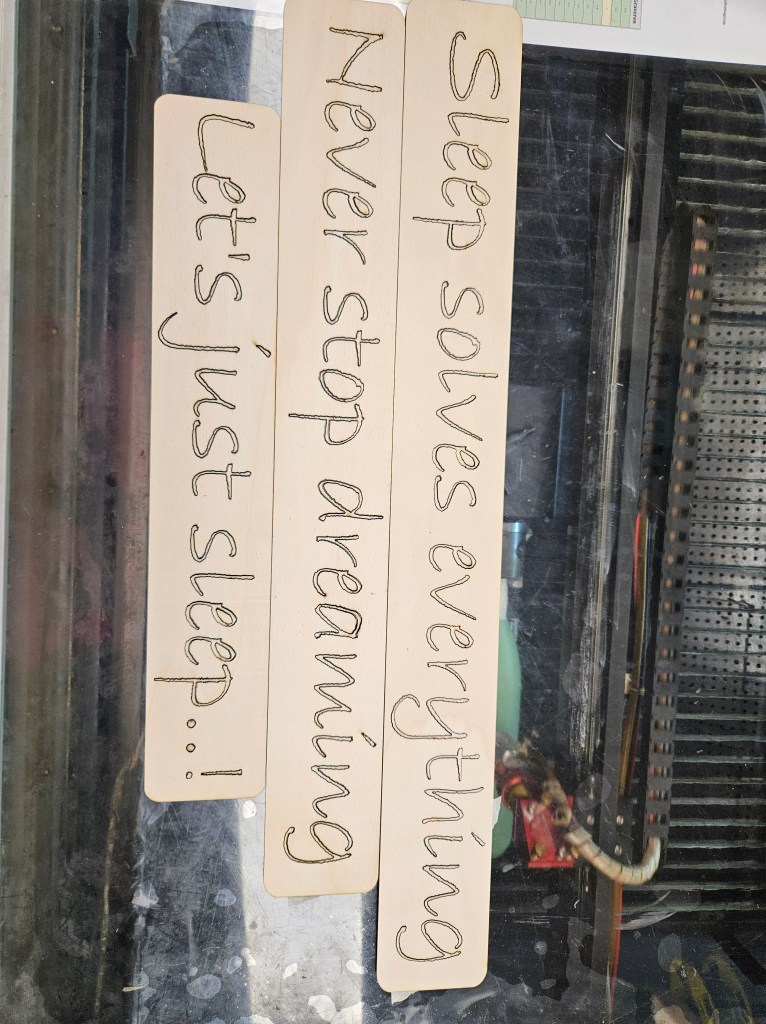 Sleep solves everything
Never stop dreaming
Let's just sleep...!